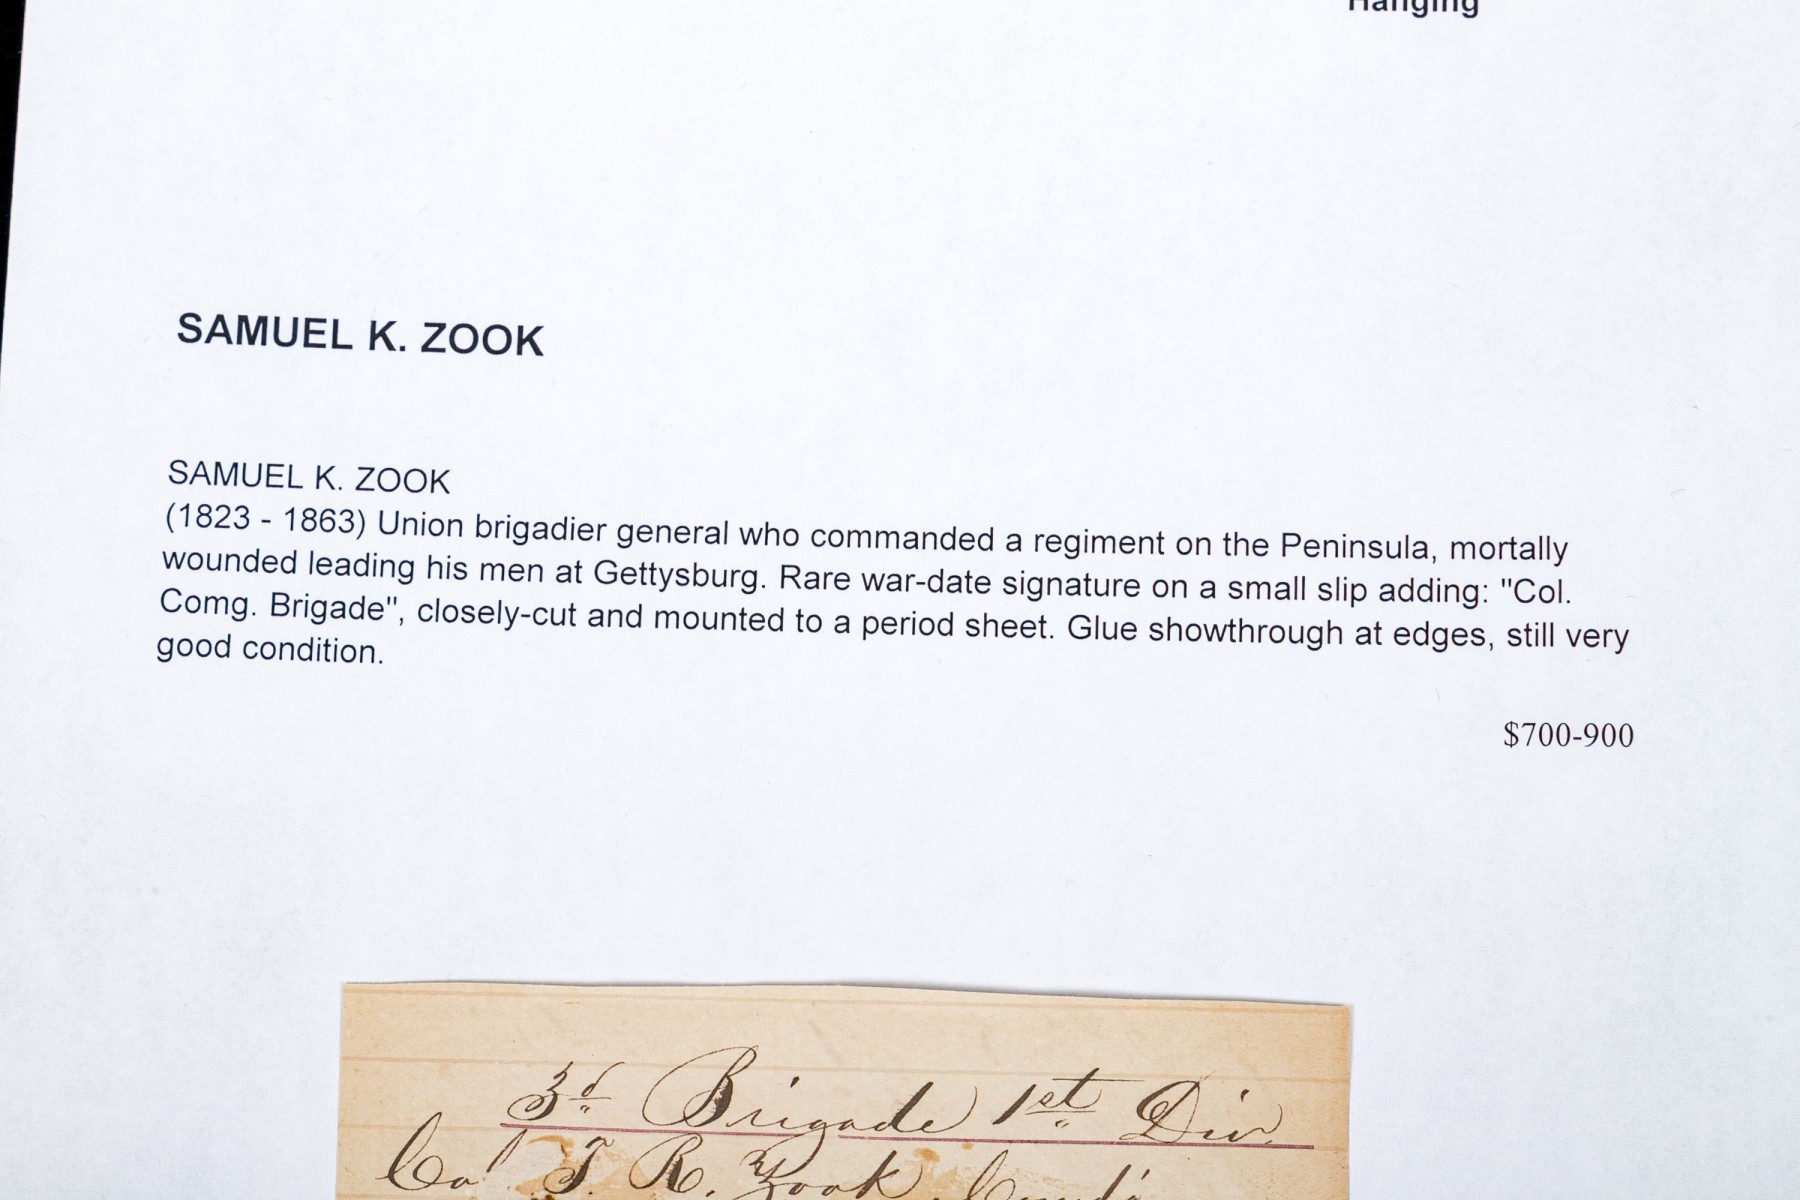 Hanging
SAMUEL K. ZOOK
SAMUEL K. ZOOK
(1823 - 1863) Union brigadier general who commanded a regiment on the Peninsula, mortally
wounded leading his men at Gettysburg. Rare war-date signature on a small slip adding: "Col.
Comg. Brigade", closely-cut and mounted to a period sheet. Glue showthrough at edges, still very
good condition.
$700-900
3d Brigade 1st Div.
Zook